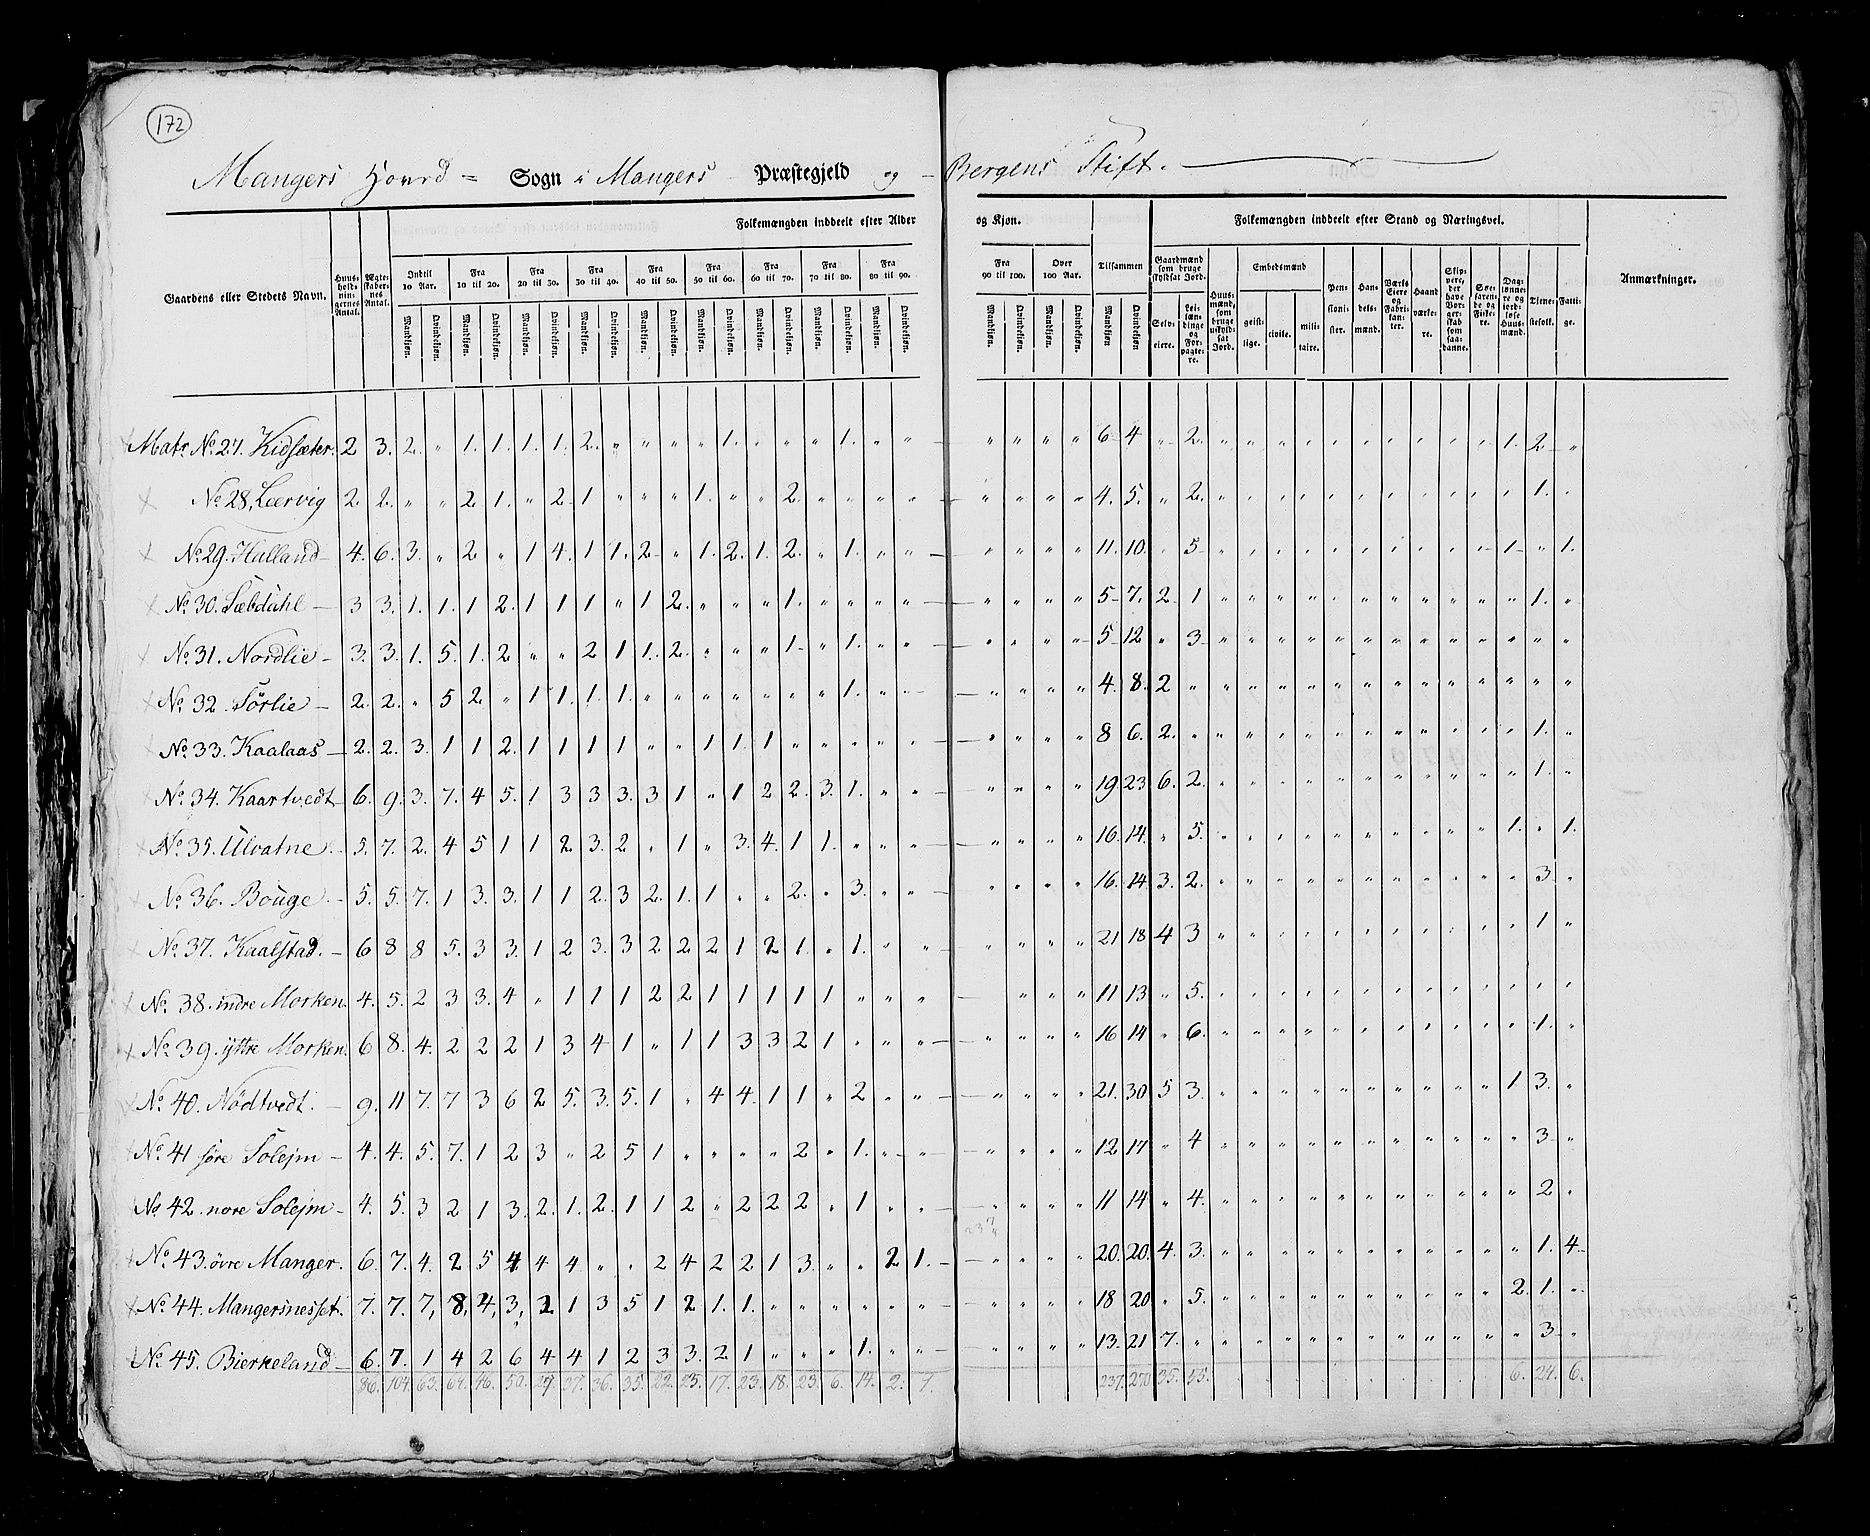 172
Mangers Hovrd = Sogn i Mangers Præstegjeld og Bergens Stift.
Gaardens eller Stedets Navn. Huusholdningernes Antal. Ægteskabernes Antal. Folkemængden inddeelt efter Alder og Kjøn. Tilsammen Folkemængden inddeelt efter Stand og Næringsvei. Anmærkninger.
Indtil 10 Aar. Fra 10 til 20. Fra 20 til 30. Fra 30 til 40. Fra 40 til 50. Fra 50 til 60. Fra 60 til 70. Fra 70 til 80. Fra 80 til 90. Fra 90 til 100. Over 100 Aar.
Gaardmænd som bruge skyldsat Jord. Huusmænd, som bruge uskyldsat Jord. Embedsmænd Pensionister. Handelsmænd. Værks Eiere og Fabrikanter. Haandværkere. Skippere, der have Borgerskab som saadanne. Søefarende og Fiskere. Daglønnere og jordløse Huusmænd. Tjenestefolk. Fattige.
Mandkjøn. Qvindekjøn. Mandkjøn. Qvindekjøn. Mandkjøn. Qvindekjøn. Mandkjøn. Qvindekjøn. Mandkjøn. Qvindekjøn. Mandkjøn. Qvindekjøn. Mandkjøn. Qvindekjøn. Mandkjøn. Qvindekjøn. Mandkjøn. Qvindekjøn. Mandkjøn. Qvindekjøn. Mandkjøn. Qvindekjøn. Mandkjøn Qvindekjøn. Selveiere. Leilændinge og Forpagtere. geistlige. civile. militaire.
Matr No 27. Kidsæter. 2 3. 2. " 1. 1. 1. 1. 2. " " " " 1. " " " 1. " " " " " " 6 4 " 2. " " " " " " " " " " 1. 2 "
No 28, Lervig 2. 2. " " 2 1. " 2 1 " " " 1. " " 2. " " " " " " " " 4. 5. " 2. " " " " " " " " " " " 1. "
No 29. Halland 4. 6. 3. " 2 " 1 4. 1 1. 2 " 1. 2. 1. 2. " 1. " " " " " " 11. 10. " 5 " " " " " " " " " " 1 " 1.
No 30. Sæbdahl 3 3. 1. 1. 1 2. 1 1 1 " 1 2. " " " 1. " " " " " " " " 5 7. 2. 1 " " " " " " " " " " " 1. "
No 31. Nordlie 3. 3. 1. 5. 1. 2 " " 2 1 1. 2. " " " 1. " 1. " " " " " " 5 12 " 3 " " " " " " " " " " " " "
No 32. Sörlie 2. 2. " 5 2. " 1 1. 1. 1. " " " " " " " 1. " " " " " " 4. 8. 2 " " " " " " " " " " " " " "
No 33. Kaalaas 2. 2. 3. 1 1 2. 1 1 1 1 " " 1 1. 1 " " " " " " " " " 8 6. 2. " " " " " " " " " " " " 1. "
No 34. Kaartvedt 6. 9. 3. 7. 4 5. 1 3 3 3. 3 1 " 1 2 2. 3. 1. " " " " " " 19 23 6. 2. " " " " " " " " " " " 1. "
No 35. Ulvatne. 5. 7. 2. 4 5 1 1 2 3. 2 " 1 " 3. 4. 1 1. " " " " " " " 16. 14. " 5. " " " " " " " " " " 1. " 1.
No 36. Bouge. 5. 5. 7. 1 3. 3. 1 1 2. 3 2. 1. 1 " " 2. " 3. " " " " " " 16. 14 3. 2. " " " " " " " " " " " 3. "
No 37. Kaalstad. 6 8 8 5. 3 3. 1 2 3. 3 2 2 2 1 2 1. " 1. " " " " " " 21 18 4 3 " " " " " " " " " " " 1 "
No 38. indre Morken. 4. 5. 2 3 3. 4 " 1 1 1 2 2 1 1 1 1 1 " " " " " " " 11 13 " 5. " " " " " " " " " " " " "
No 39. ijttre Morken. 6 8. 4. 2 2 2 1 3 4 1 " 1 1 3 3 2 1 " " " " " " " 16 14 " 6. " " " " " " " " " " " 1. "
No 40. Nödtvedt. 9. 11 7. 7 3 6 2 5. 3. 5. 1 " 4 4. 1 1 " 2 " " " " " " 21. 30 5 3. " " " " " " " " " " 1 3. "
No 41 söre Solejm 4. 4. 5. 7. 1 2 3 " 2 5 1 " " " " 2 " 1. " " " " " " 12 17 " 4 " " " " " " " " " " " 3 "
No 42. nore Solejm 4. 5. 3 2 1 3. 2. 1. 2. 1 1 2 " 2 2 2 " 1 " " " " " " 11 14 " 4. " " " " " " " " " " " 2 "
No 43. övre Manger. 6. 7. 4. 2 5 4 4 4 " " 2 4 2 2 1 3. " " 2 1. " " " " 20. 20. 4. 3. " " " " " " " " " " " 1. 4
No 44. Mangersnesset. 7. 7. 7, 8, 4, 3, 2 1 3 5 1 2 1. 1. " " " " " " " " " " 18 20 " 5. " " " " " " " " " " 2. 1. "
No 45. Bierkeland 6. 7. 1 4 2 6 4 4 1 2 3 3. 2 1 " " " 1. " " " " " " 13. 21 7. " " " " " " " " " " " " 3 "
86. 104. 63. 46. 37. 36. 35. 22. 25. 17. 23. 18. 23. 6. 14. 2. 237. 270 35. 55. 6. 24. 6.